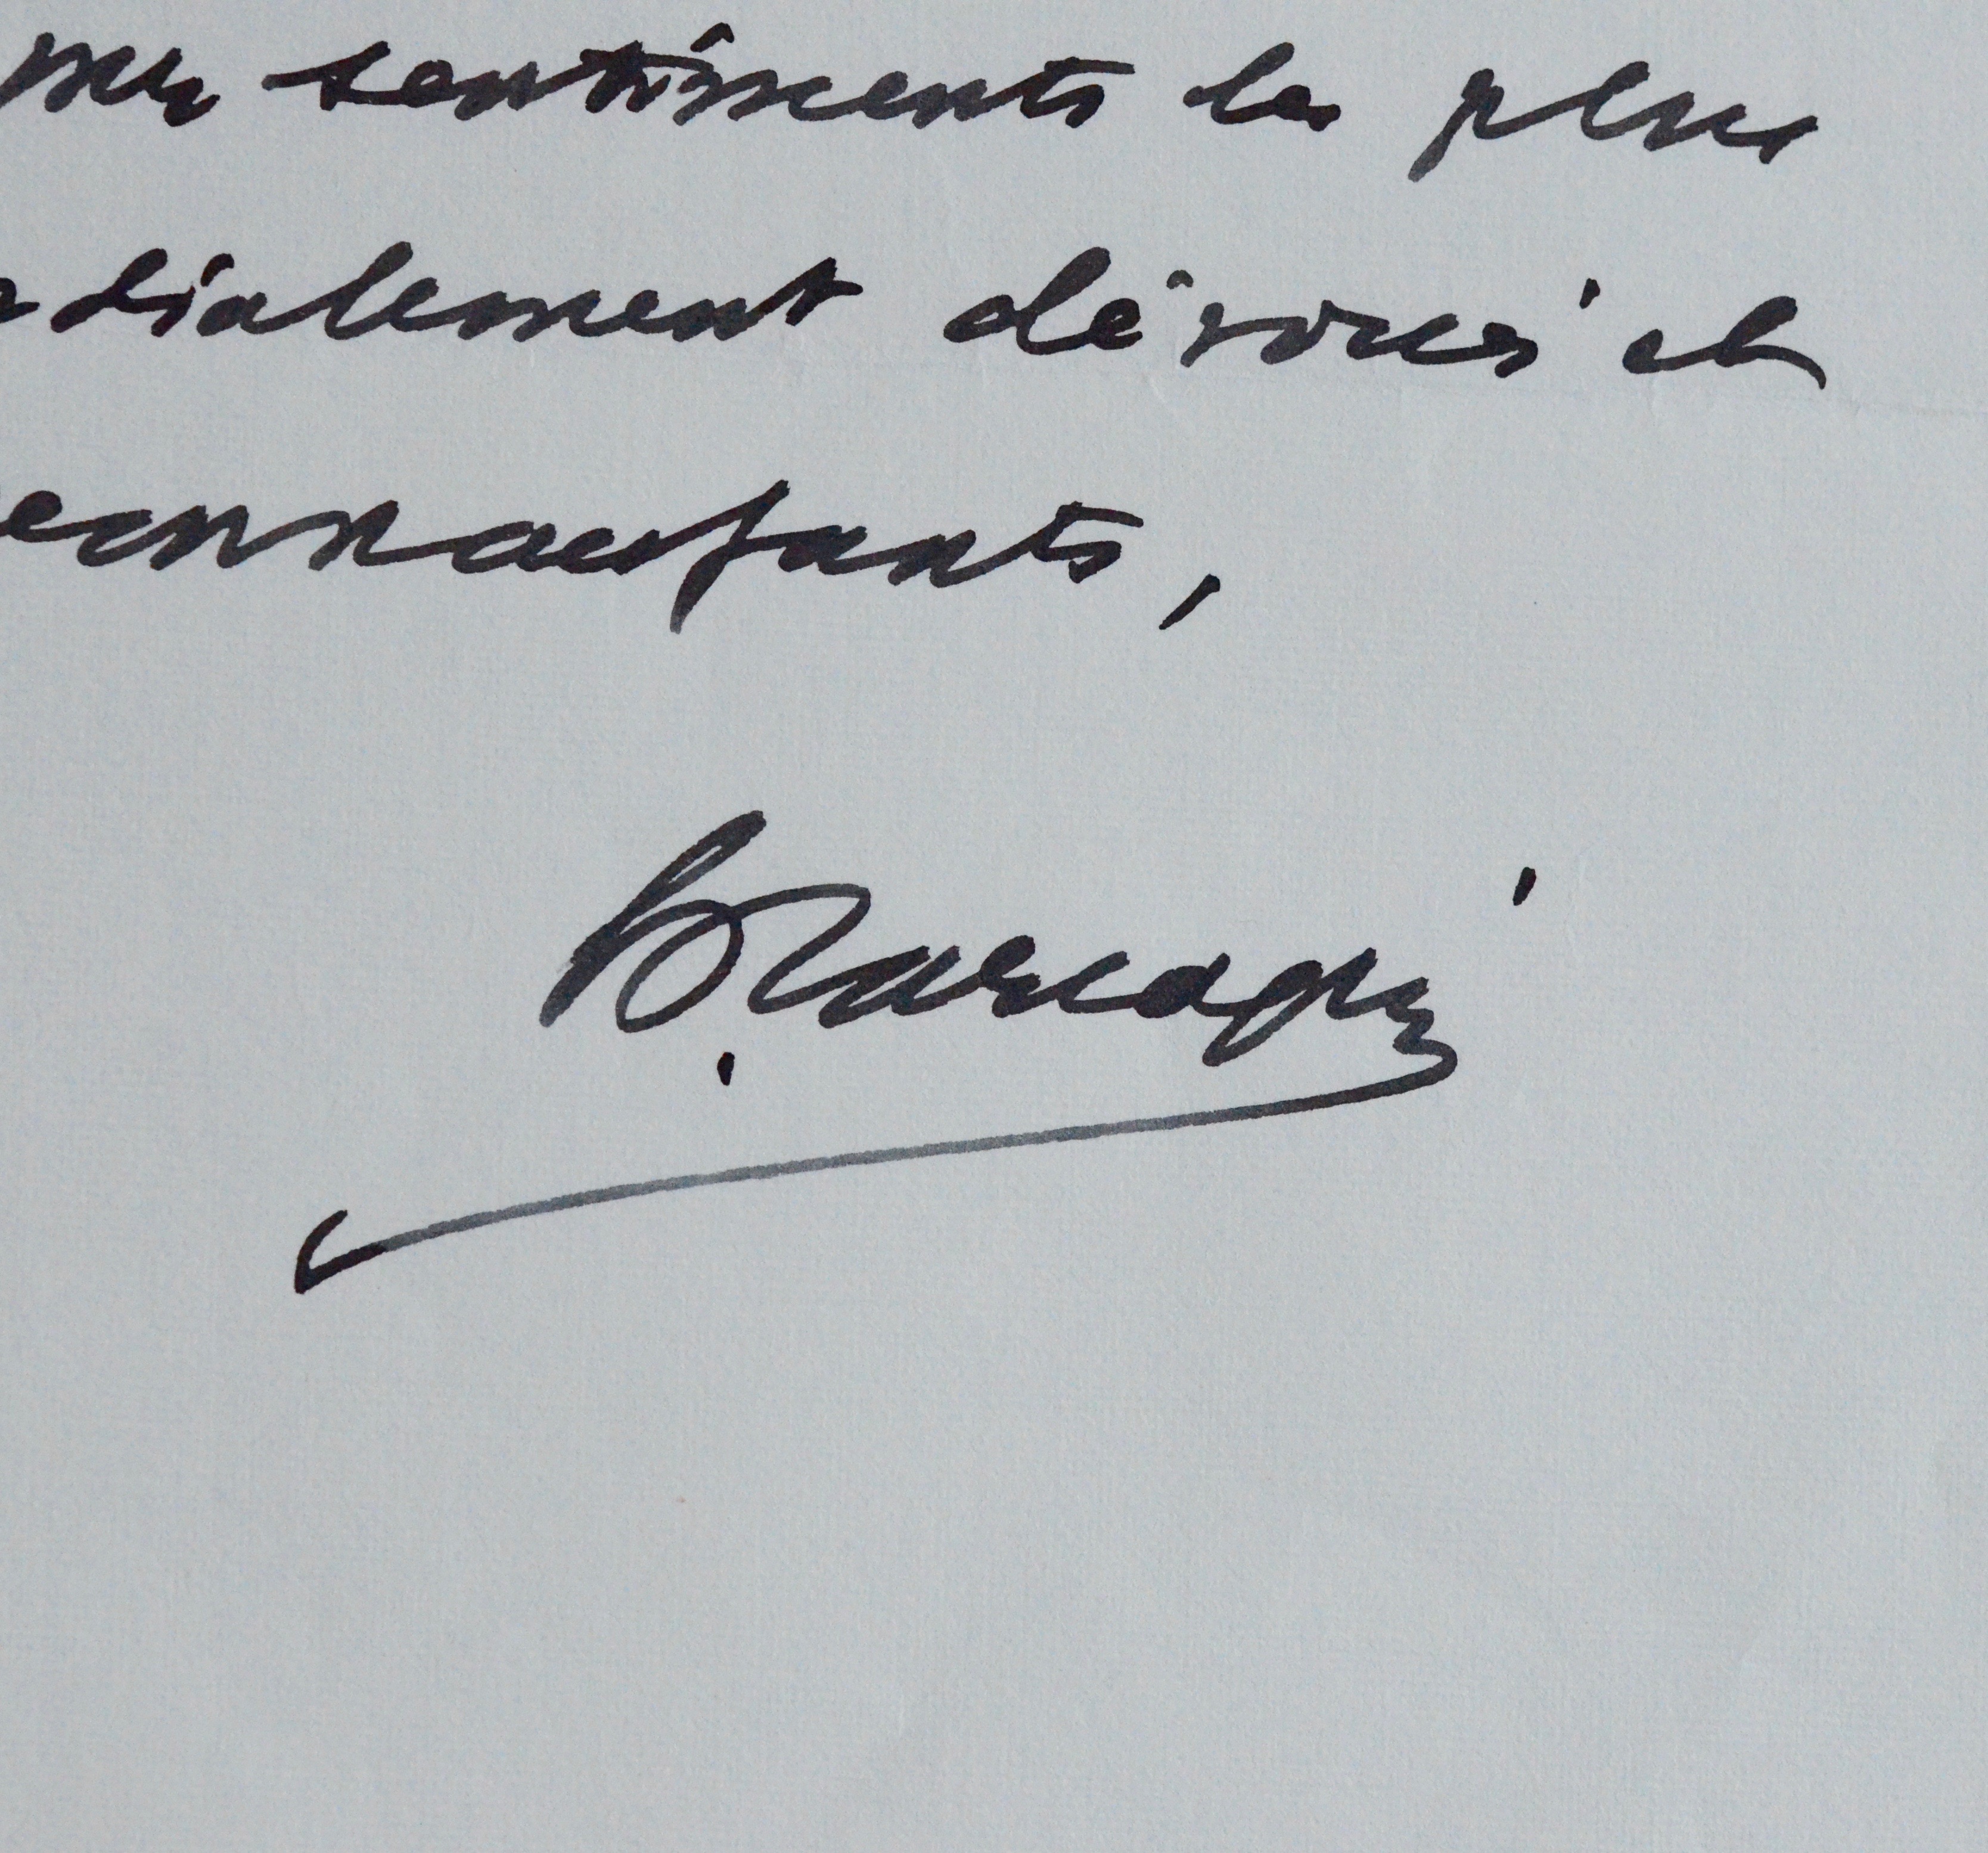 mes sentiments les plus
dialement dévoués et
econnaissants,